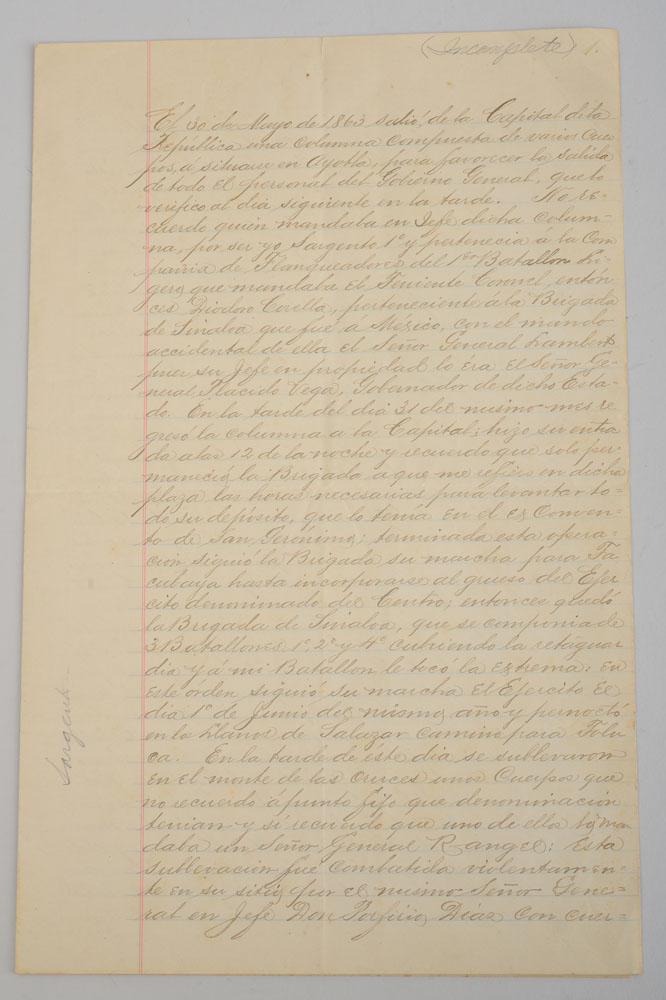 (Incomplete) 1.
El 30 de Mayo de 1863 salió, de la Capital de la
República una columna compuesta de varios Cuer-
pos, á situarse en Ayotla, para favorecer la salida
de todo el personal del Gobierno General, que lo
verificó al dia siguiente en la tarde. No re-
cuerdo quien mandaba en Jefe dicha colum-
na, por ser yo Sargento 1º y pertenecia á la Com
pañia de Flanqueadores del 1er Batallon Li-
gero, que mandaba el Teniente Coronel, entón-
ces Diodoro Corella, perteneciente á la Brigada
de Sinaloa que fué á México, con el mando
accidental de ella el Señor General Lambert
pues su Jefe en propiedad lo era el Señor Ge-
neral, Placido Vega, Gobernador de dicho Esta-
do. En la tarde del dia 31 del mismo mes re
gresó la columna a la Capital; hizo su entra
da a las 12 de la noche y recuerdo que solo per
maneció, la Brigada a que me refiero en dicha
plaza las horas necesarias para levantar to-
do su depósito, que lo tenia en el ex Conven-
to de San Gerónimo; terminada esta opera-
cion siguió la Brigada su marcha para Ta
cubaya hasta incorporarse al grueso del Ejer
cito denominado del Centro; entonces quedó
la Brigada de Sinaloa, que se componia de
3 Batallones 1º 2º y 4º cubriendo la retaguar
dia y á mi Batallon le tocó la extrema: en
este orden siguió su marcha el Ejercito el
dia 1º de Junio del mismo año y pernoctó
en los Llanos de Salazar camino para Tolu
ca. En la tarde de éste dia se sublevaron
en el monte de las cruces unos Cuerpos que
no recuerdo á punto fijo que denominación
tenian y sí recuerdo que uno de ellos lo man
daba un Señor General Rangel: Esta
sublevación fué combatida violentamen-
te en su sitio, por el mismo Señor Gene-
ral en Jefe Don Porfirio Diaz con cuer-
Sargent